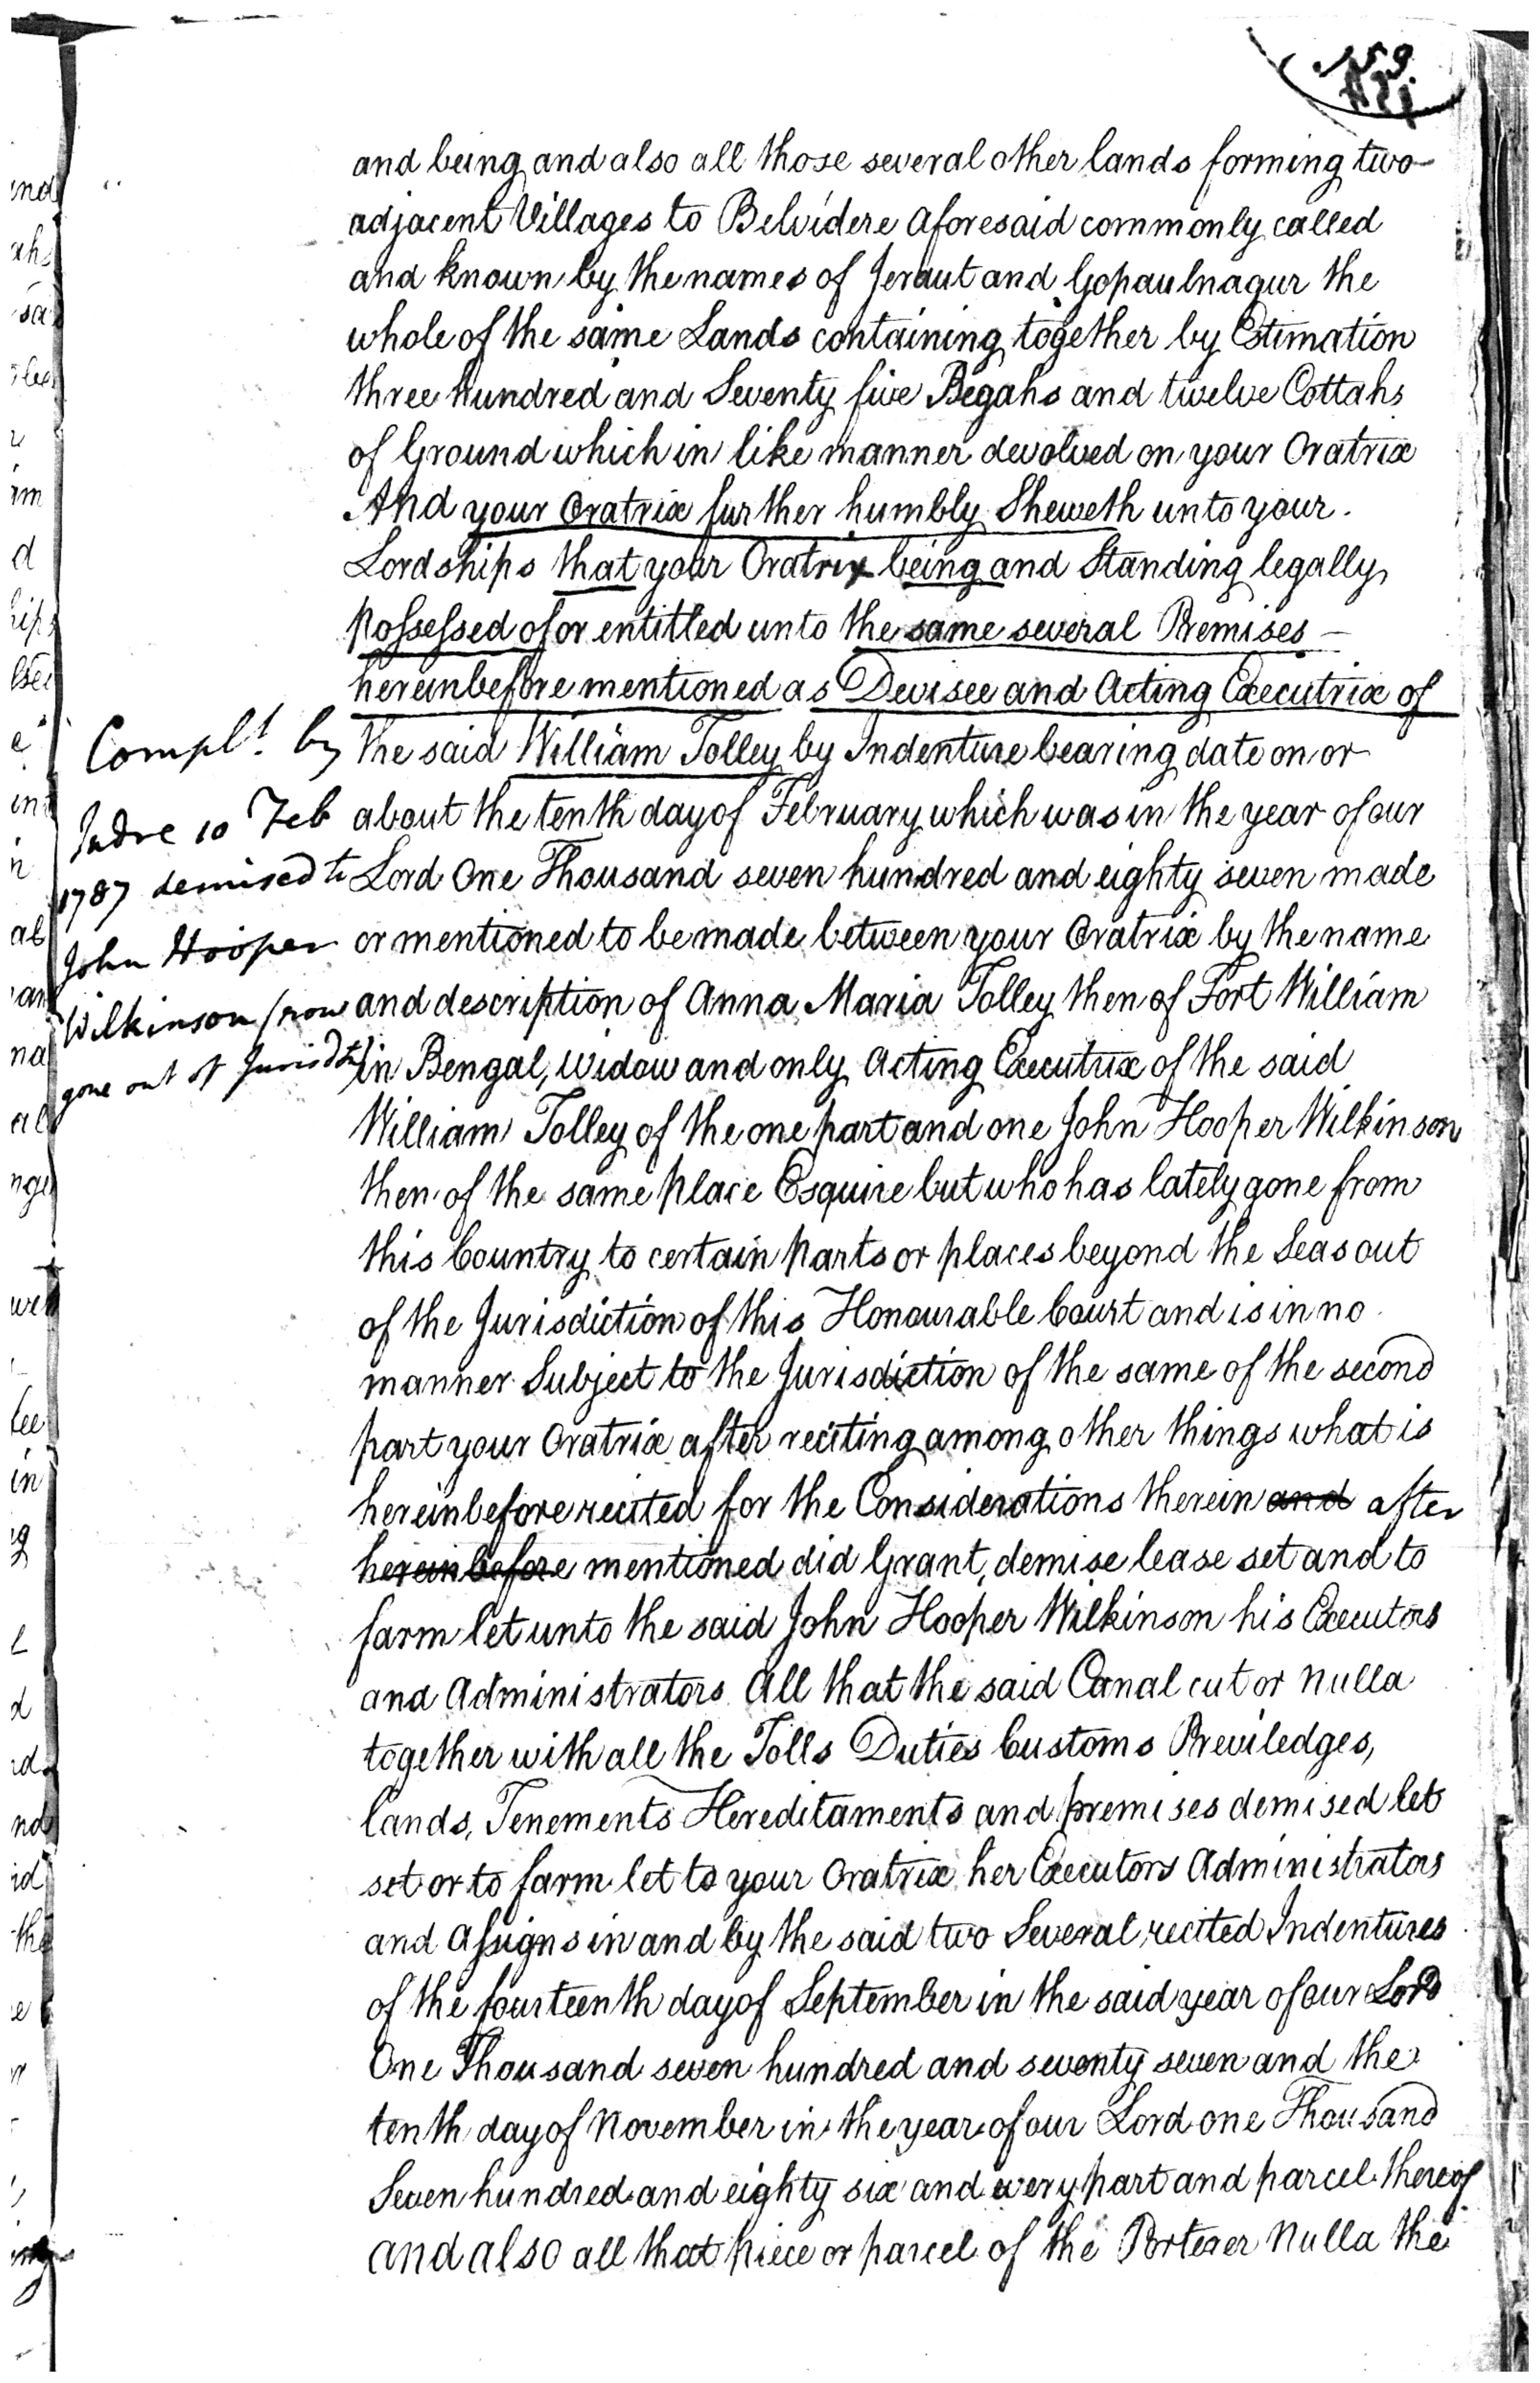 159
and being and also all those several other lands forming two
adjacent Villages to Belvidere aforesaid commonly called
and known by the names of Jeraut and Gopaulnagur the
whole of the same Lands containing together by Estimation
three hundred and Seventy five Begahs and twelve Cottahs
of Ground which in like manner devolved on your Oratrix
And your Oratrix further humbly Sheweth unto your
Lordships that your Oratrix being and Standing legally
possessed of or entitled unto the same several Premises
hereinbefore mentioned as Devisee and Acting Executrix of
the said William Tolley by Indenture bearing date on or
about the tenth day of February which was in the year of our
Lord One Thousand seven hundred and eighty seven made
or mentioned to be made between your Oratrix by the name
and description of Anna Maria Tolley then of Fort William
in Bengal, Widow and only Acting Executrix of the said
William Tolley of the one part and one John Hooper Wilkinson
then of the same place Esquire but who has lately gone from
this Country to certain parts or places beyond the Seas out
of the Jurisdiction of this Honourable Court and is in no
manner Subject to the Jurisdiction of the same of the second
part your Oratrix after reciting among other things what is
hereinbefore recited for the Considerations therein and after
hereinbefore mentioned did Grant, demise lease set and to
farm let unto the said John Hooper Wilkinson his Executors
and Administrators All that the said Canal cut or Nulla
together with all the Tolls Duties Customs Previledges,
lands, Tenements Hereditaments and premises demised let
set or to farm let to your Oratrix her Executors Administrators
and Assigns in and by the said two Several recited Indentures
of the fourteenth day of September in the said year of our Lord
One Thousand seven hundred and seventy seven and the
tenth day of November in the year of our Lord one Thousand
Seven hundred and eighty six and every part and parcel thereof
and also all that piece or parcel of the Porterer Nulla the
Complt. by
Indre 10 Feb
1787 demised to
John Hooper
Wilkinson (now
gone out of